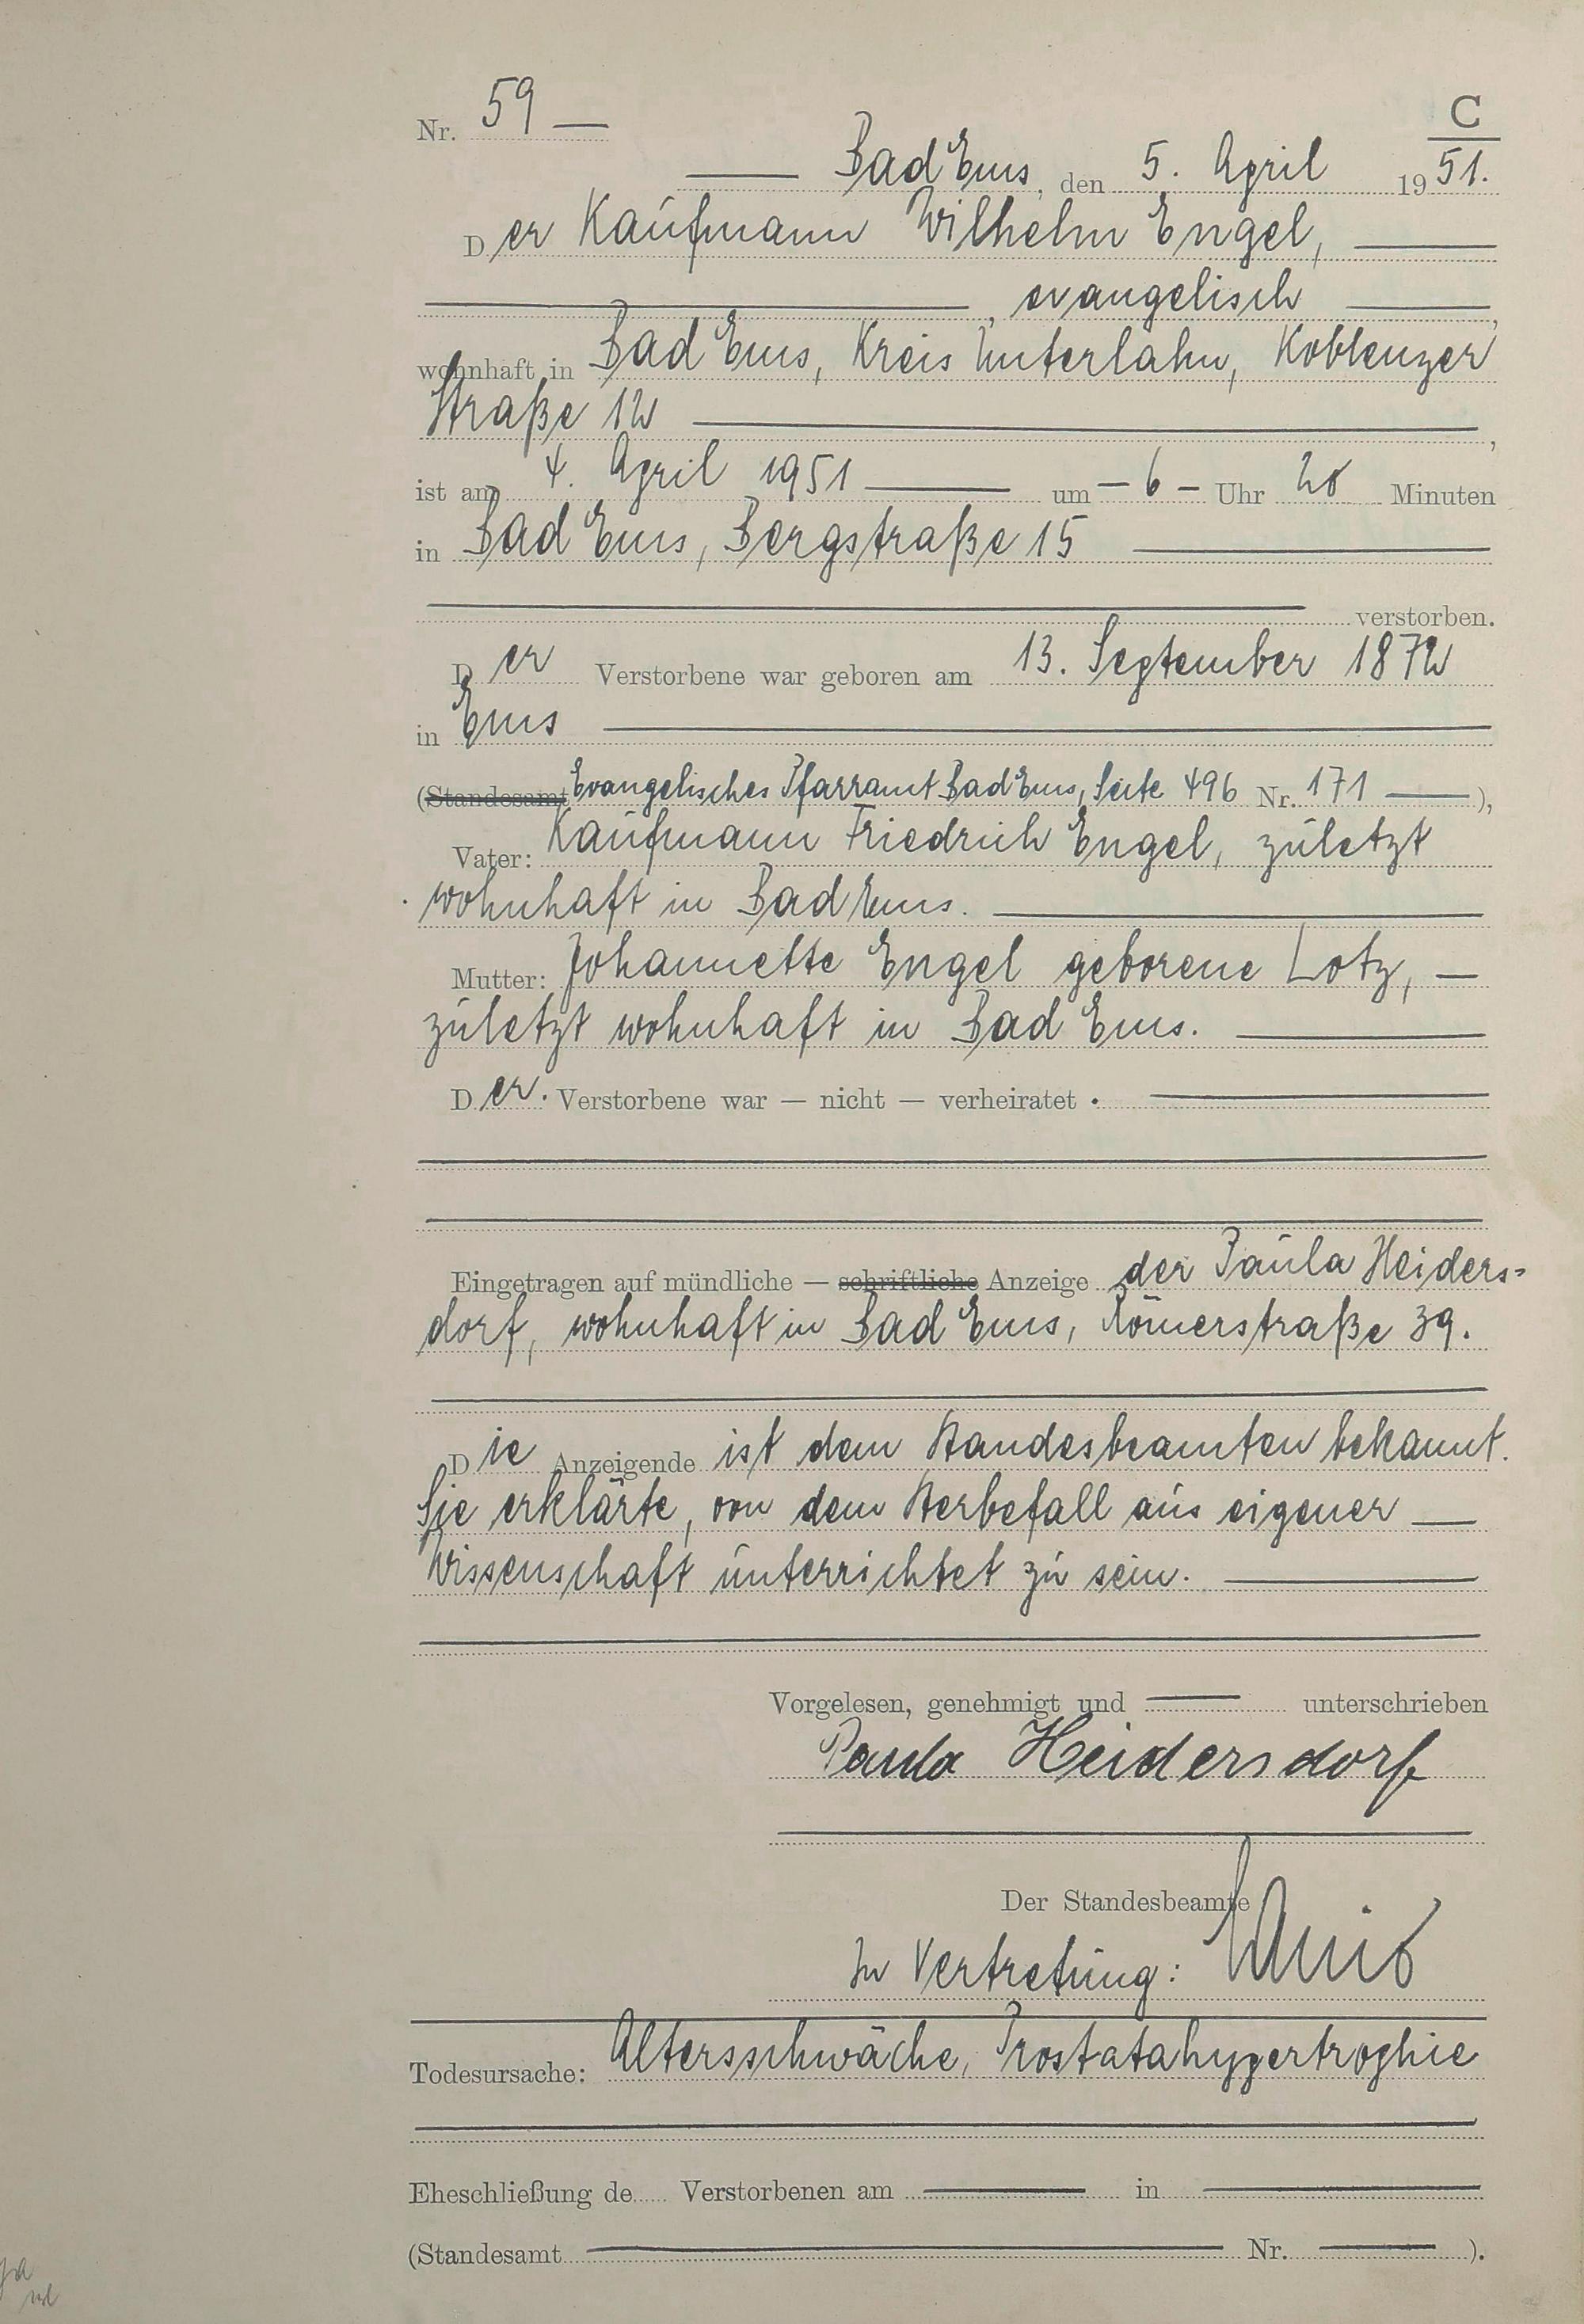 C
Nr. 59 —
— Bad Ems, den 5. April 1951.
Der Kaufmann Wilhelm Engel, —
—, evangelisch —,
wohnhaft in Bad Ems, Kreis Unterlahn, Koblenzer
Straße 12 —,
ist am 4. April 1951 — um — 6 — Uhr 20 Minuten
in Bad Ems, Bergstraße 15 —
— verstorben.
Der Verstorbene war geboren am 13. September 1872
in Ems —
(Standesamt Evangelisches Pfarramt Bad Ems, Seite 496 Nr. 171 —),
Vater: Kaufmann Friedrich Engel, zuletzt
wohnhaft in Bad Ems. —
Mutter: Johannette Engel geborene Lotz, —
zuletzt wohnhaft in Bad Ems. —
Der Verstorbene war — nicht — verheiratet. —
Eingetragen auf mündliche — schriftliche Anzeige der Paula Heiders=
dorf, wohnhaft in Bad Ems, Römerstraße 39.
Die Anzeigende ist dem Standesbeamten bekannt.
Sie erklärte, von dem Sterbefall aus eigener —
Wissenschaft unterrichtet zu sein. —
Vorgelesen, genehmigt und — unterschrieben
Paula Heidersdorf
Der Standesbeamte
In Vertretung:
Todesursache: Altersschwäche, Prostatahypertrophie
Eheschließung de Verstorbenen am — in —
(Standesamt — Nr. —).